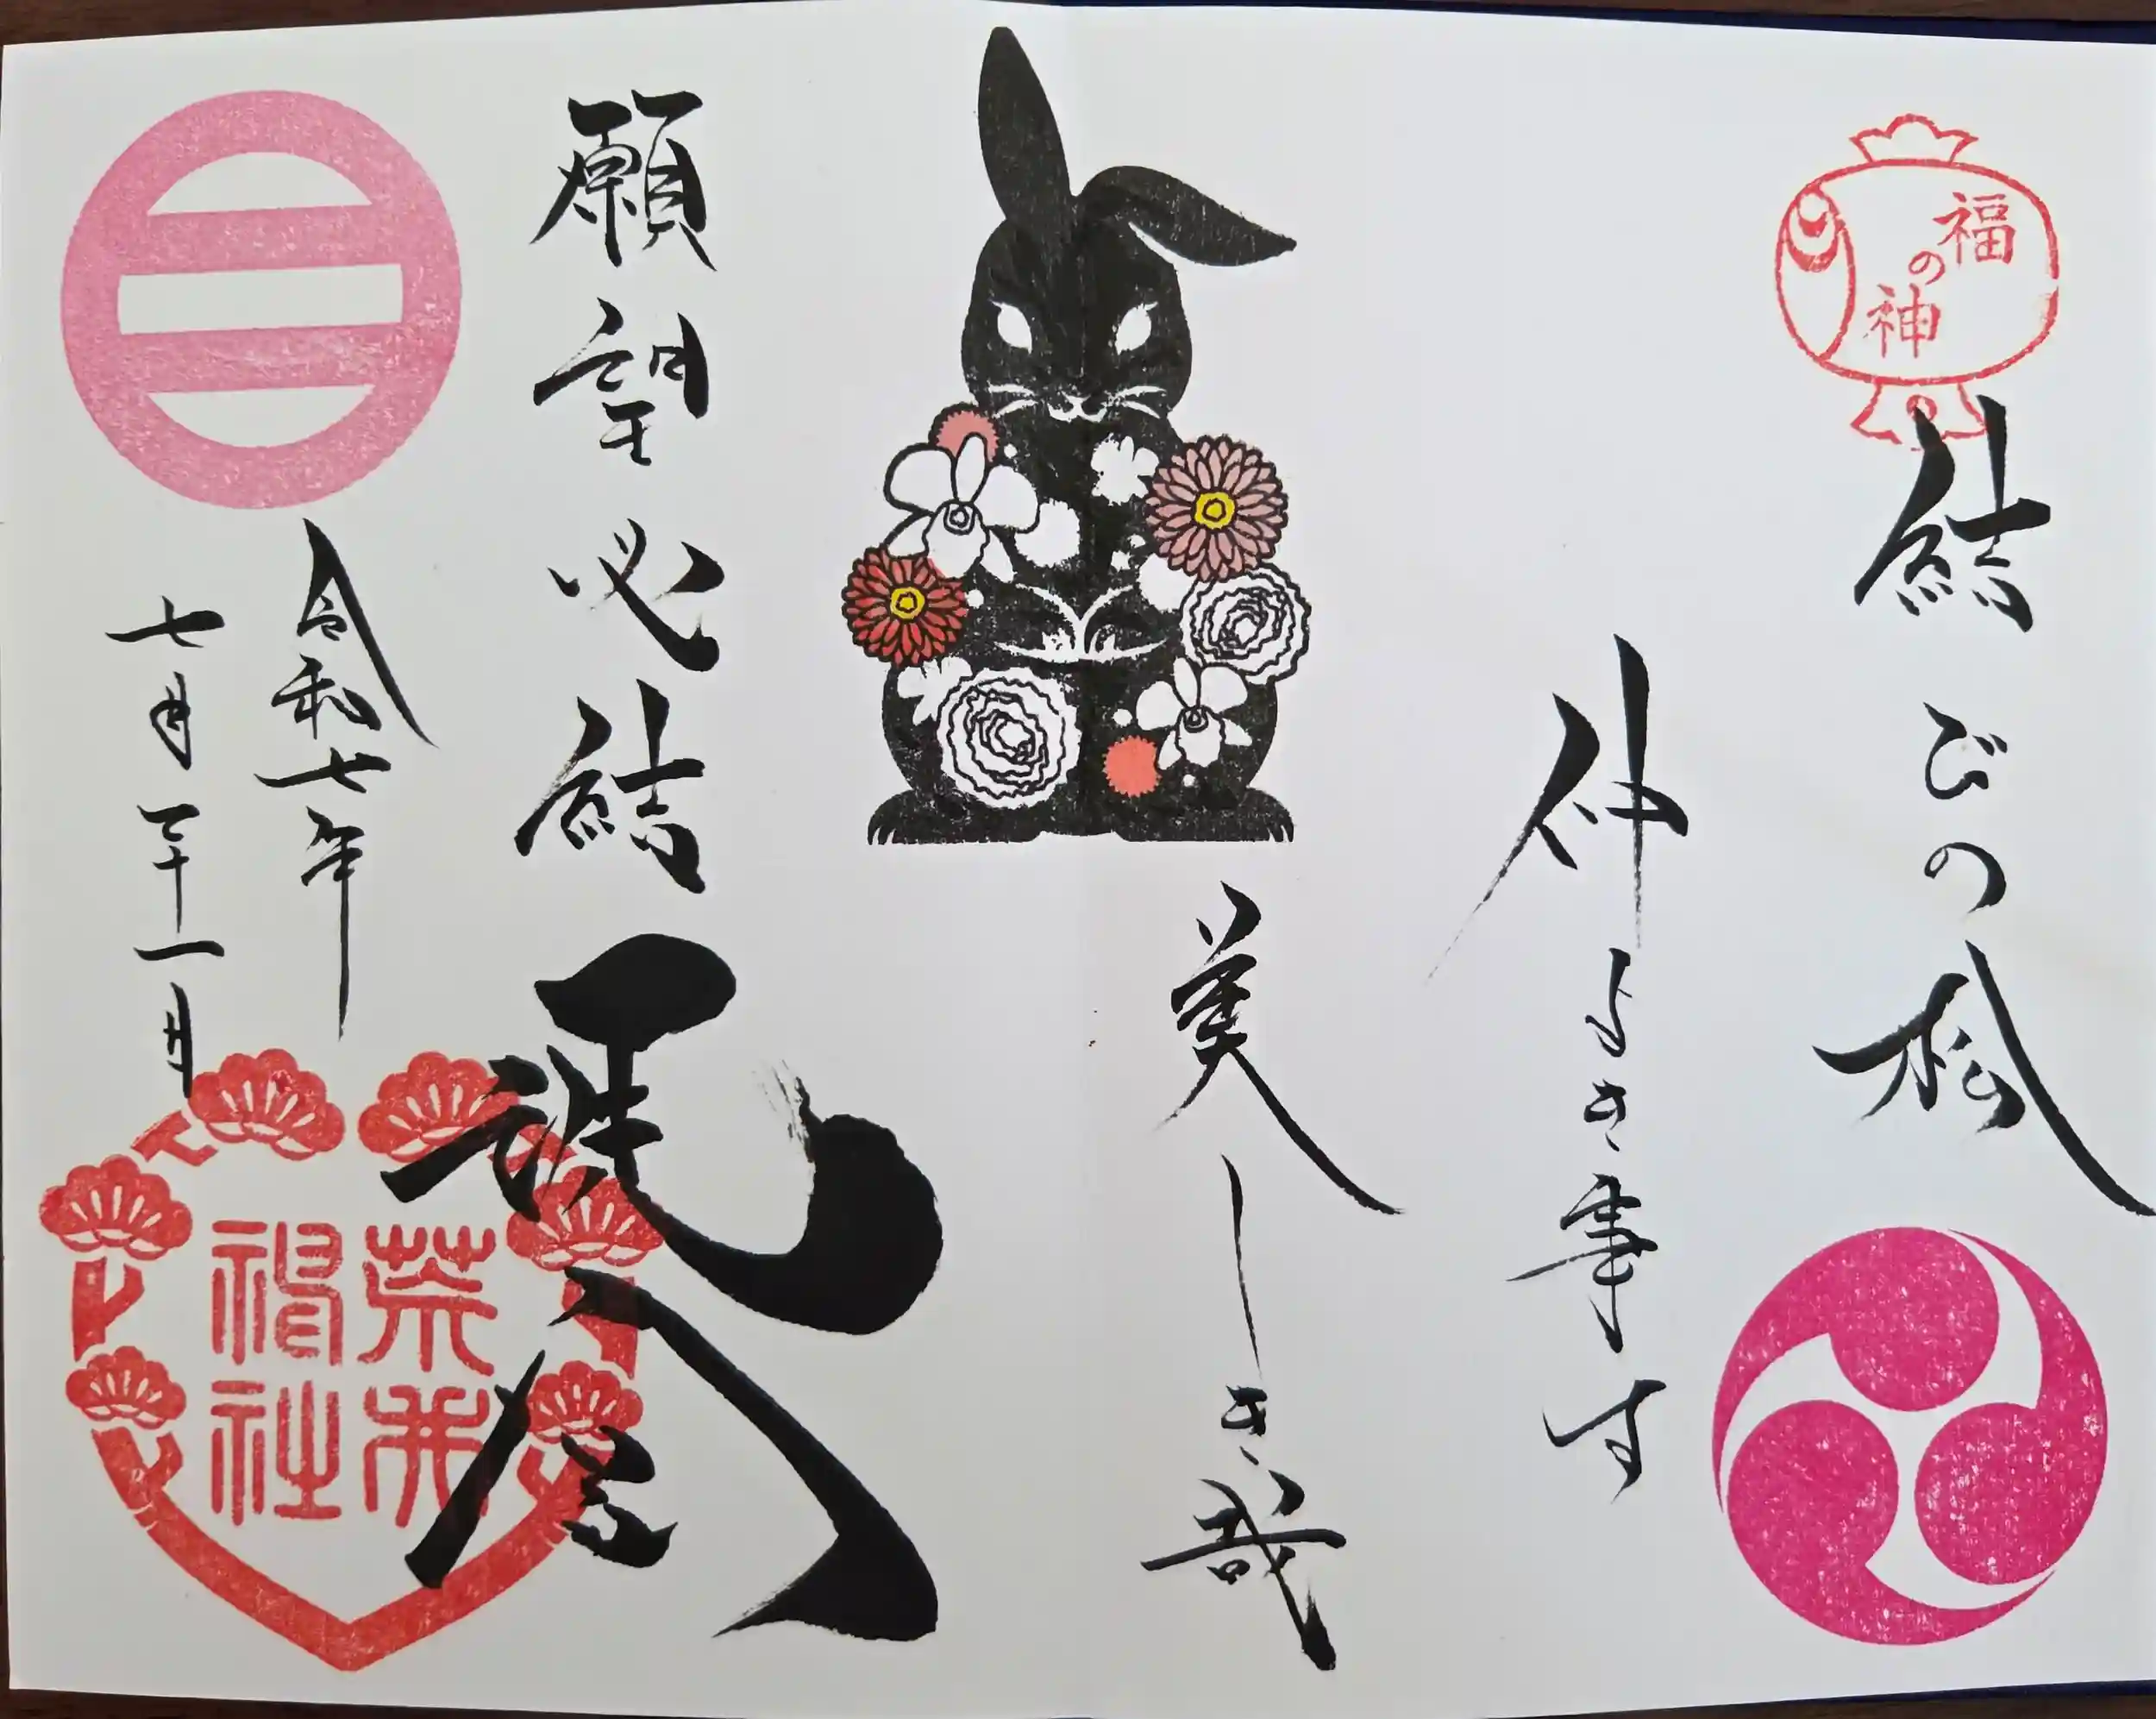 福の神
結びの松
仲よき事は
美しき哉
願望必結
令和七年
七月二十一日
荒井
神社